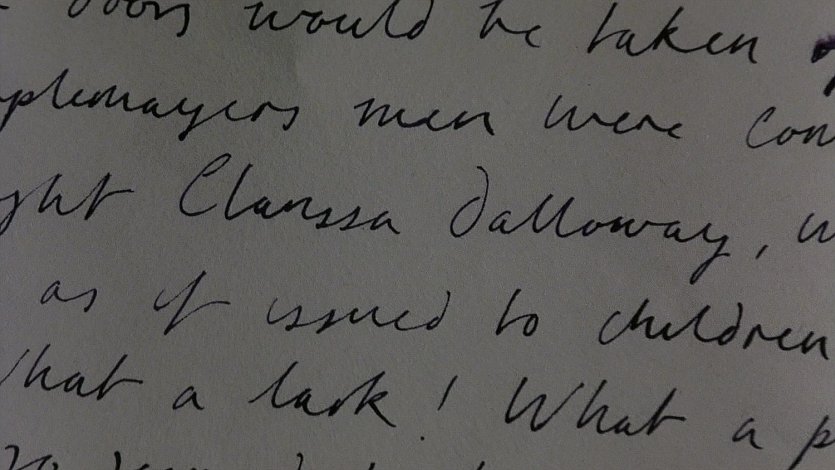 doors would be taken
plemayers men were con
ght Clarissa Dalloway, w
as if issued to children
What a lark! What a p